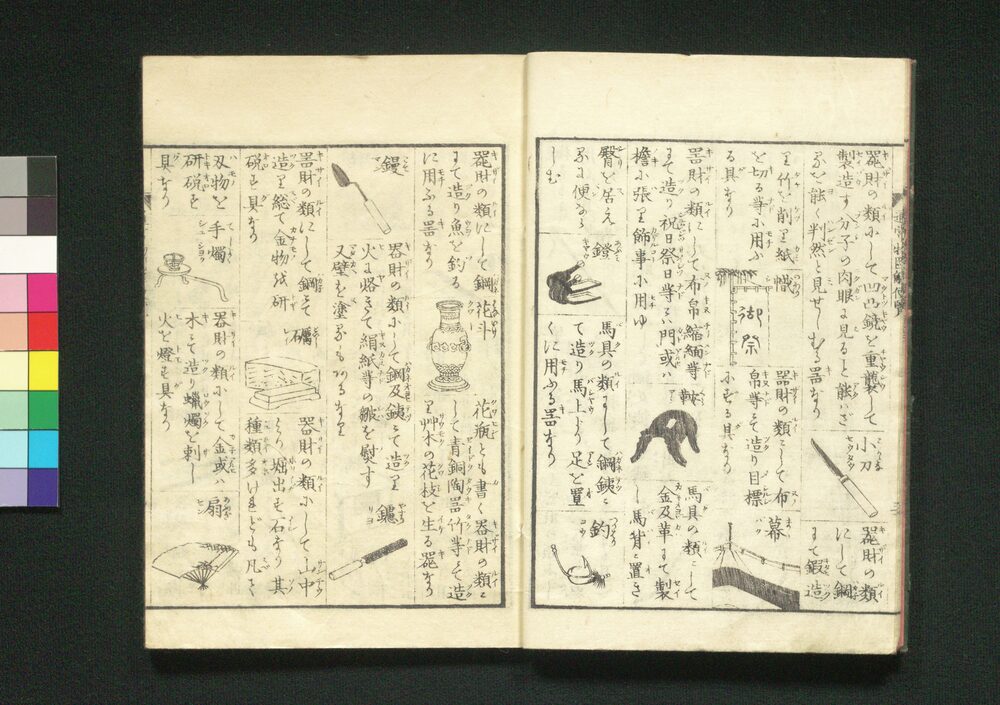 器財の類にして凹凸鏡を重襲して
製造す分子の肉眼に見ると能ハざ
るを能く判然と見せしむる器なり
小刀
器財の類
にして鋼
にて鍛造
し竹を削り紙
を切る等に用ふ
る具なり
幟
御祭
器財の類にして布
帛等にて造り目標
にする具なり
幕
器財の類にして布帛縮緬等
にて造り祝日祭日等には門或ハ
檐に張り飾事に用ゆ
鞍
馬具の類にして
金及革にて製
し馬背に置き
臀を居え
るに便なら
しむ
鐙
馬具の類にして鋼鉄に
て造り馬上より足を置
くに用ふる器なり
釣
器財の類にして鋼
にて造り魚を釣る
に用ふる器なり
花斗
花瓶とも書く器財の類に
して青銅陶器竹等にて造
り艸木の花枝を生る器なり
鏝
器財の類にして鋼及鉄にて造り
火に烙きて絹紙等の皺を熨す
又壁を塗るもあるなり
鑢
器財の類にして鋼にて
造り総て金物を研
硯す具なり
礪
器財の類にして山中
より堀出す石なり其
種類多けれども凡そ
刄物を
研硯す
具なり
手燭
器財の類にして金或ハ
木にて造り蠟燭を刺し
火を燈す具なり
扇